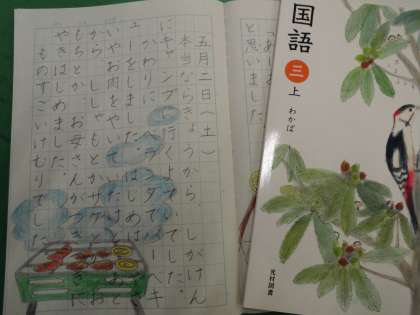 五月二日(土)
本当ならきょうから、しがけん
にキャンプに行くよていでした。
かわりに、ベランダでバーベキ
ューをしました。はじめは、
いやお肉をやいていたけど、おと
から、ししゃもとかサケとか、お
もちとか、お母さんがつぎつぎに
やきはじめました。
ものすごいけむりでした
と思いました。
国語
三
上
わかば
光村図書